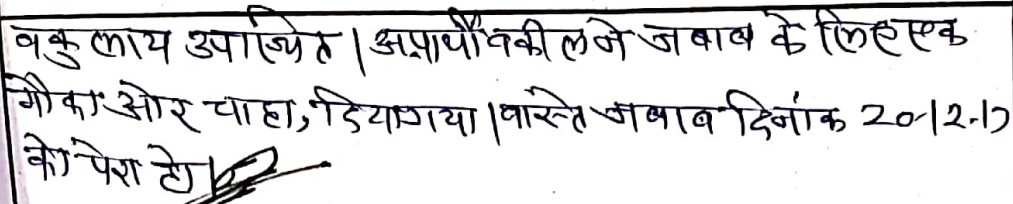 वकुलाय उपस्थित। अप्रार्थी वकील ने जबाब के लिए एक
मौका और चाहा, दिया गया। वास्ते जबाब दिनांक 20-12-17
को पेश हो।